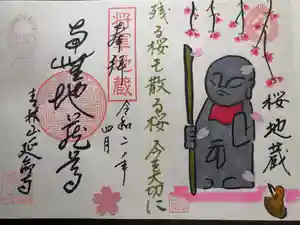 桜地蔵
残る桜も散る桜 今を大切に
将軍地蔵
奉拝
令和二年
四月
南無地蔵尊
山延命寺